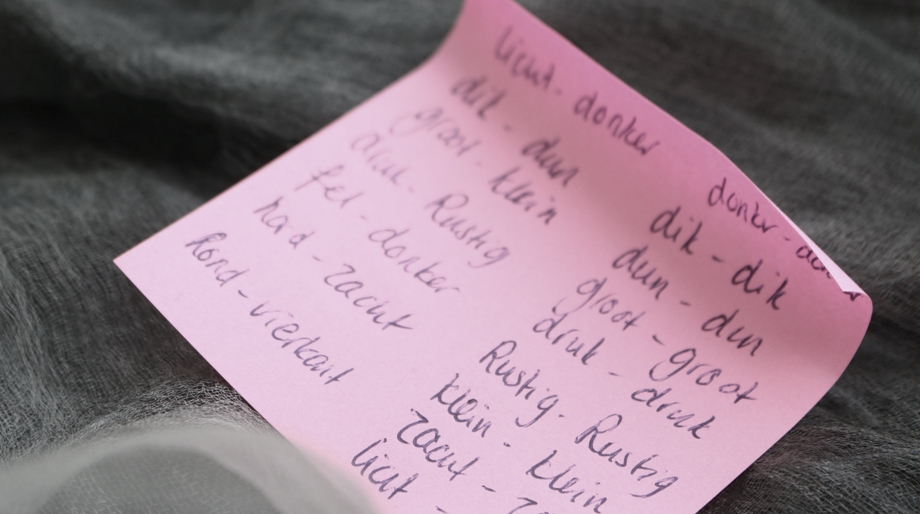 licht - donker
dik - dun
groot - klein
druk - Rustig
fel - donker
hard - zacht
Rond - vierkant
donker -
dik - dik
dun - dun
groot - groot
druk - druk
Rustig - Rustig
klein - klein
zacht -
licht -